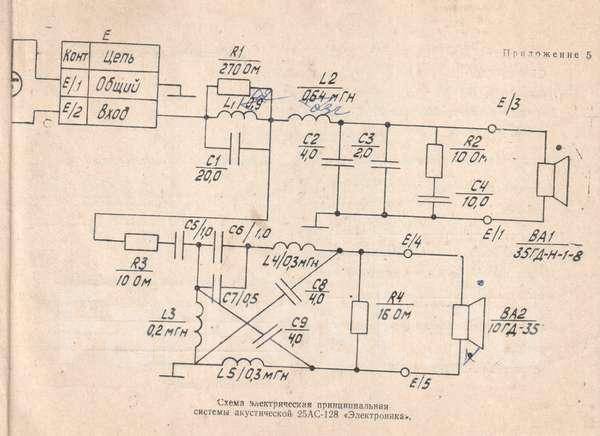 Приложение 5
E
Конт Цепь
E/1 Общий
E/2 Вход
R1
270 Ом
L1/0,9
C1
20,0
L2
0,64 мГн
E/3
C2
4,0
C3
2,0
R2
10 Ом
C4
10,0
E/1
BA1
35ГД-Н-1-8
C5/1,0
C6/1,0
R3
10 Ом
C7/0,5
L4/0,3мГн
L3
0,2мГн
C8
4,0
C9
4,0
L5/0,3мГн
E/4
R4
16 Ом
BA2
10ГД-35
E/5
Схема электрическая принципиальная
системы акустической 25АС-128 «Электроника».